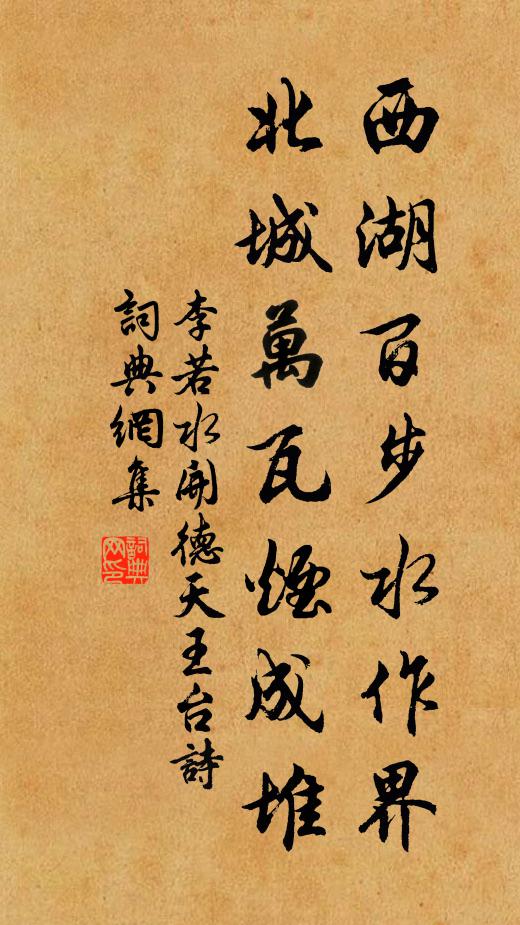 西湖百步水作界
北城萬瓦煙成堆
李若水開德天王台詩
詞典網集
詞典網印